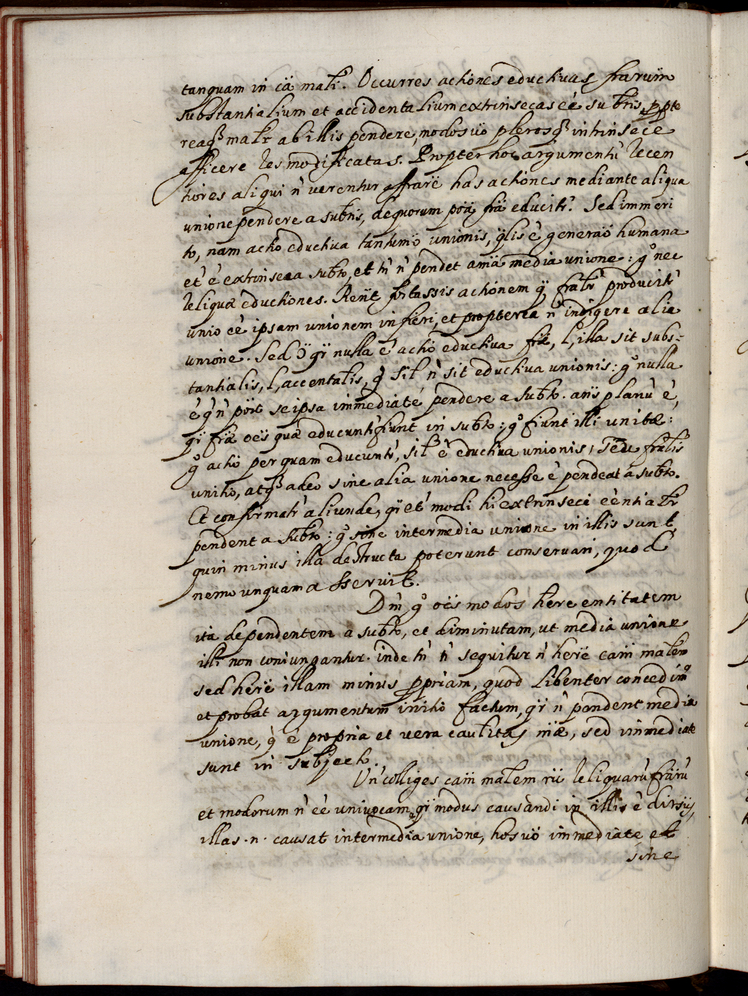 tanquam in cã matı̃. Occurres actiones eductivas frarum̃
substantialium et accidentalium extrinsecas eẽ subtis, ppte
reaq̃ matr̃ ab illis pendere, modos uõ plerosq̃ intrinsece
afficere res modificatas. Propter hoc argumentũ recen
tiores aliqui ñ verentur affrare has actiones mediante aliqua
unione pendere a subtis, de quorum põa fra educitr̃. Sed immeri
to, nam actio eductiva tantum̃o unionis, qlis ẽ generaõ humana
et ẽ extrinseca subto, et tñ ñ pendet a mã media unione: gº nec
reliquæ eductiones. fortassis actionem q̃ fralr̃ producitr̃
unio eẽ ipsam unionem in fieri, et propterea ñ indigere alia
unione. Sed õ qĩ nulla ẽ actio eductiva fræ, l, illa sit subs-
tantialis, l, accentalis, q̃ sil ñ sit eductiva unionis: gº nulla
ẽ q̃ ñ põt seipsa immediate pendere a subto. añs planũ ẽ,
qĩ fræ oẽs quæ educuntr̃ fiunt in subto: gº fiunt illi unitæ:
gº actio per quam educuntr̃, sil ẽ eductiva unionis,
unitio, atq̃ adeo sine alia unione necesse ẽ pendeat a subto.
Et confirmatr̃ aliunde, qĩ et modi hi extrinseci eẽntialr̃
pendent a subto: gº sine intermedia unione in illis sunt
quin minus illa destructa poterunt conservari, quod
nemo unquam asservit.
Dm̃ gº oẽs modos here entitatem
ita dependentem a subto, et diminutam, ut media unione
illi non coniungantur. inde tñ ñ sequitur ñ here cãm malem
sed here illam minus ppriam, quod libenter concedimº
et probat argumentum initio factum, qĩ ñ pendent media
unione, q̃ ẽ propria et vera caulitas mæ, sed immediate
sunt in subjecto.
Vñ colliges cãm malem reliquarũ frarũ
et modorum ñ eẽ univocam, qĩ modus causandi in illis ẽ divsus,
illas .n. causat intermedia unione, hos uõ immediate et
sine